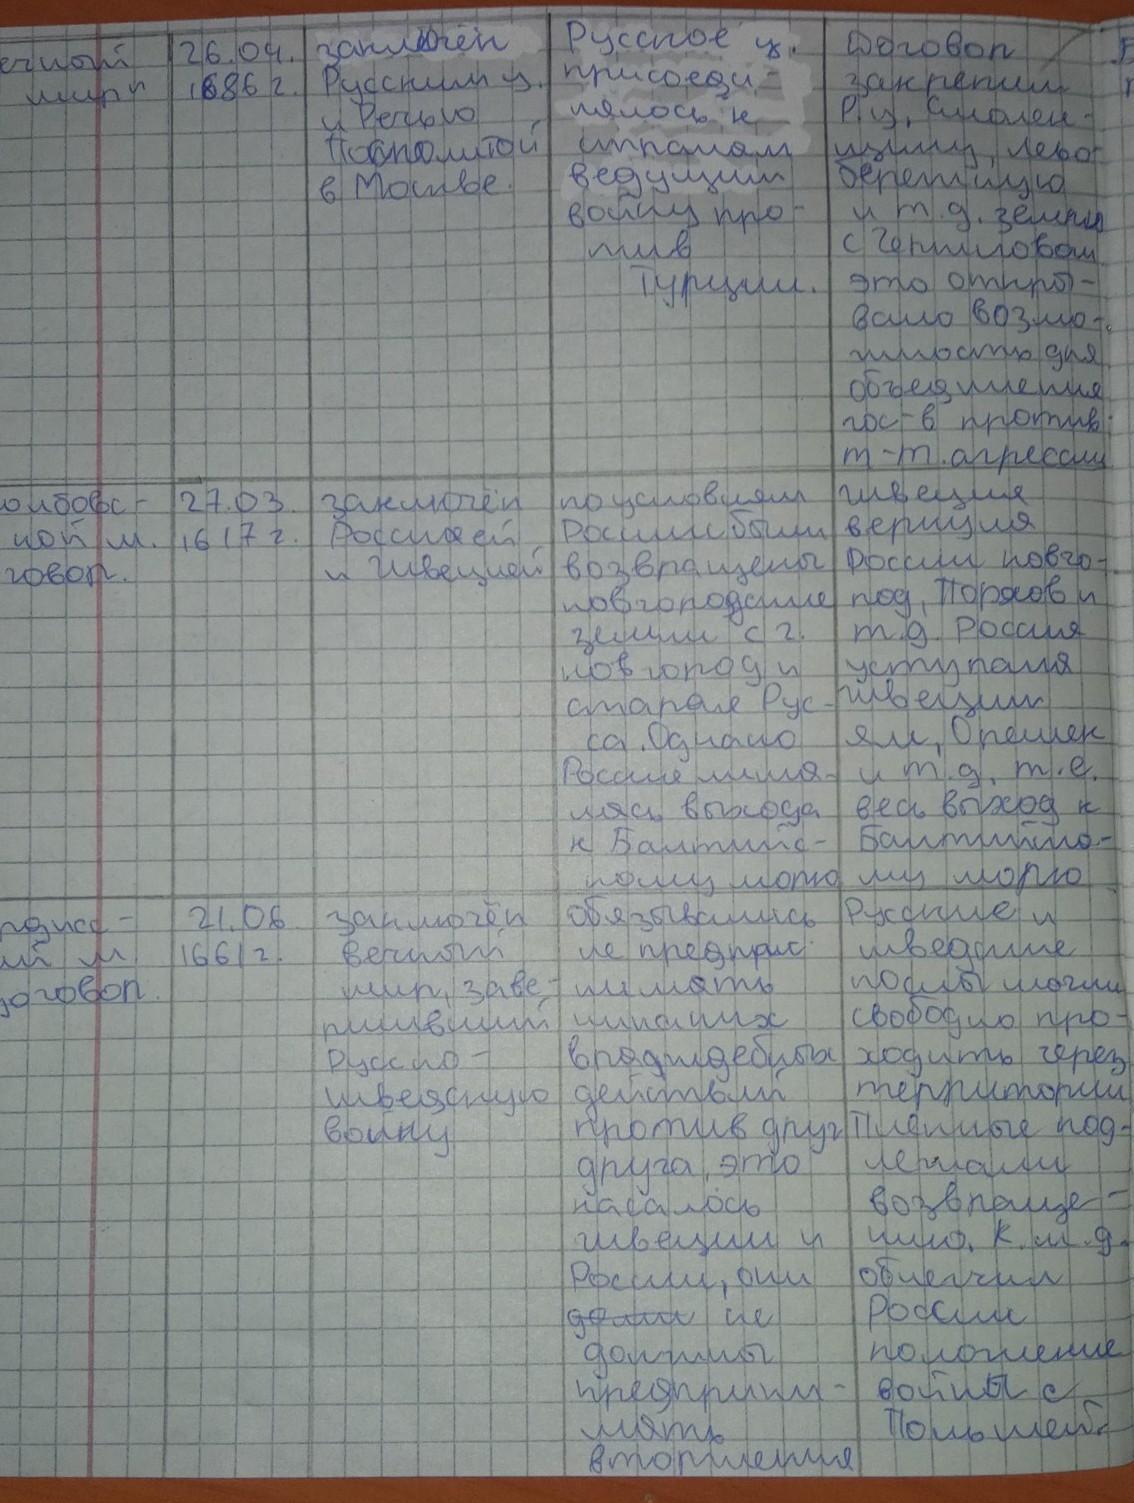 ечный
мирп
26.04.
1686 г.
заключён
Русским ц.
и Речью
Посполитой
в Москве.
Русское ц.
присоеди-
нялось к
странам
ведущим
войну про-
тив
Турции.
Договор
закрепил
Р.ц. Смолен-
щину, лево-
бережную
и т.д. земли
с Черниговом
это откры-
вало возмо-
жность для
объединения
гос-в против
т-т. агрессии
олбовс-
кой м.
говор.
27.03.
1617 г.
заключён
Россией
и Швецией
по условиям
России были
возвращены
новгородские
земли с г.
новгород и
старая Рус-
са. Однако
Россия лиша-
лась выхода
к Балтийс-
кому морю
швеция
вернула
России новго-
род, Порхов и
т.д. Россия
уступала
швеции
ям, Орешек
и т.д. т.е.
весь выход к
Балтийско-
му морю
рдисс-
ий м
договор.
21.06
1661 г.
заключён
вечный
мир, заве-
ршивший
Русско-
шведскую
войну
обязывались
не предпри
нимать
никаких
враждебных
действий
против друг
друга, это
касалось
швеции и
России, они
не
должны
предприни-
мать
вторжения
Русские и
шведские
послы могли
свободно про-
ходить через
территории
Пленные под-
лежали
возвраще-
нию. К.м.д.
облегчил
России
положение
войны с
Польшей.